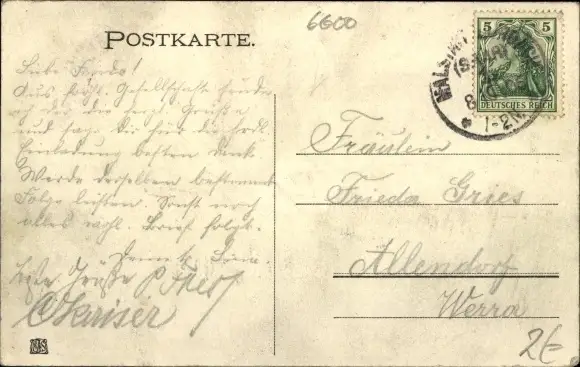 6600
POSTKARTE.
5 5
DEUTSCHES REICH
1-2N.
Liebe Frieda!
Aus fröhl. Gesellschaft sende
ich dir die herzl. Grüße
und sage dir für die
Einladung besten Dank
Werde derselben bestimmt
Folge leisten. Sonst noch
alles Brief folgt.
Deine
Beste Grüße
CKaiser
Fräulein
Frieda Gries
Allendorf
Werra
2€